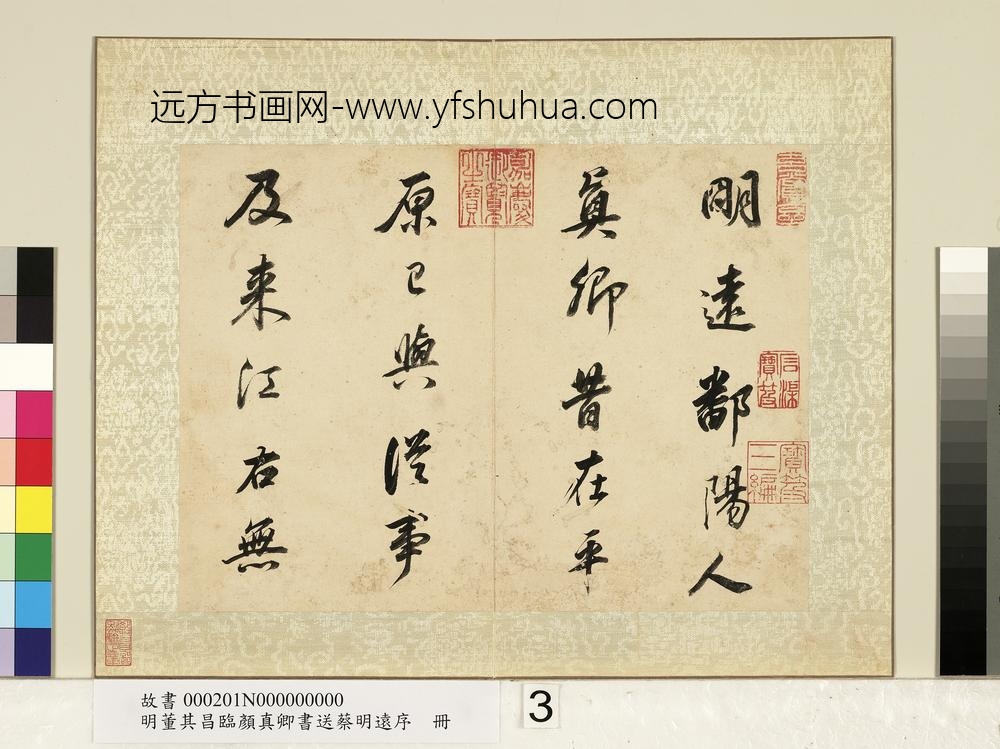 远方书画网-www.yfshuhua.com
明遠鄱陽人
真卿昔在平
原已與從事
及來江右無
嘉慶御覽之寶
寶笈三編
故書 000201N000000000
明董其昌臨顏真卿書送蔡明遠序 冊
3